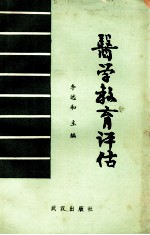 醫学教育评估
李远和 主编
武汉出版社